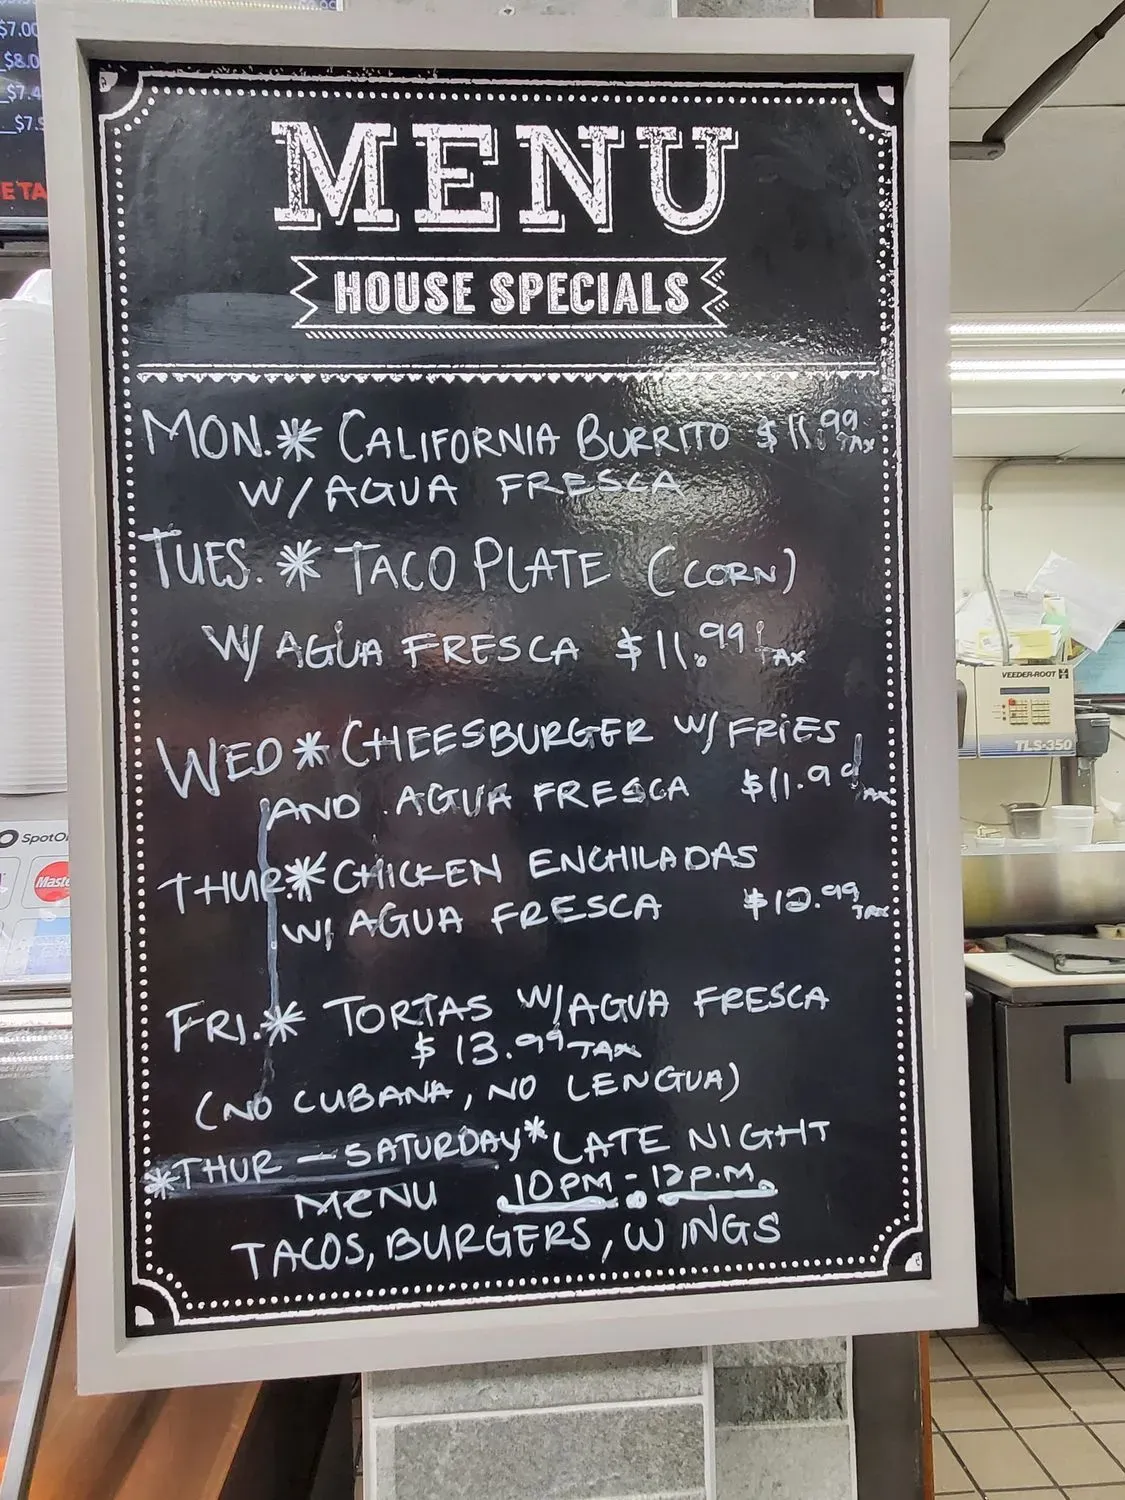 $7.00
$8.0
$7.4
$7.5
E TA
MENU
HOUSE SPECIALS
MON.* CALIFORNIA BURRITO $11.99 TAX
W/AGUA FRESCA
TUES. * TACO PLATE (CORN)
W/AGUA FRESCA $11.99 TAX
WED * CHEESBURGER W/ FRIES
AND AGUA FRESCA $11.99 TAX
THUR.* CHICKEN ENCHILADAS
W/ AGUA FRESCA $12.99 TAX
FRI.* TORTAS W/AGUA FRESCA
$13.99 TAX
(NO CUBANA, NO LENGUA)
*THUR - SATURDAY* LATE NIGHT
MENU 10PM - 12P.M.
TACOS, BURGERS, WINGS
VEEDER-ROOT
TLS-350
SpotO
Maste